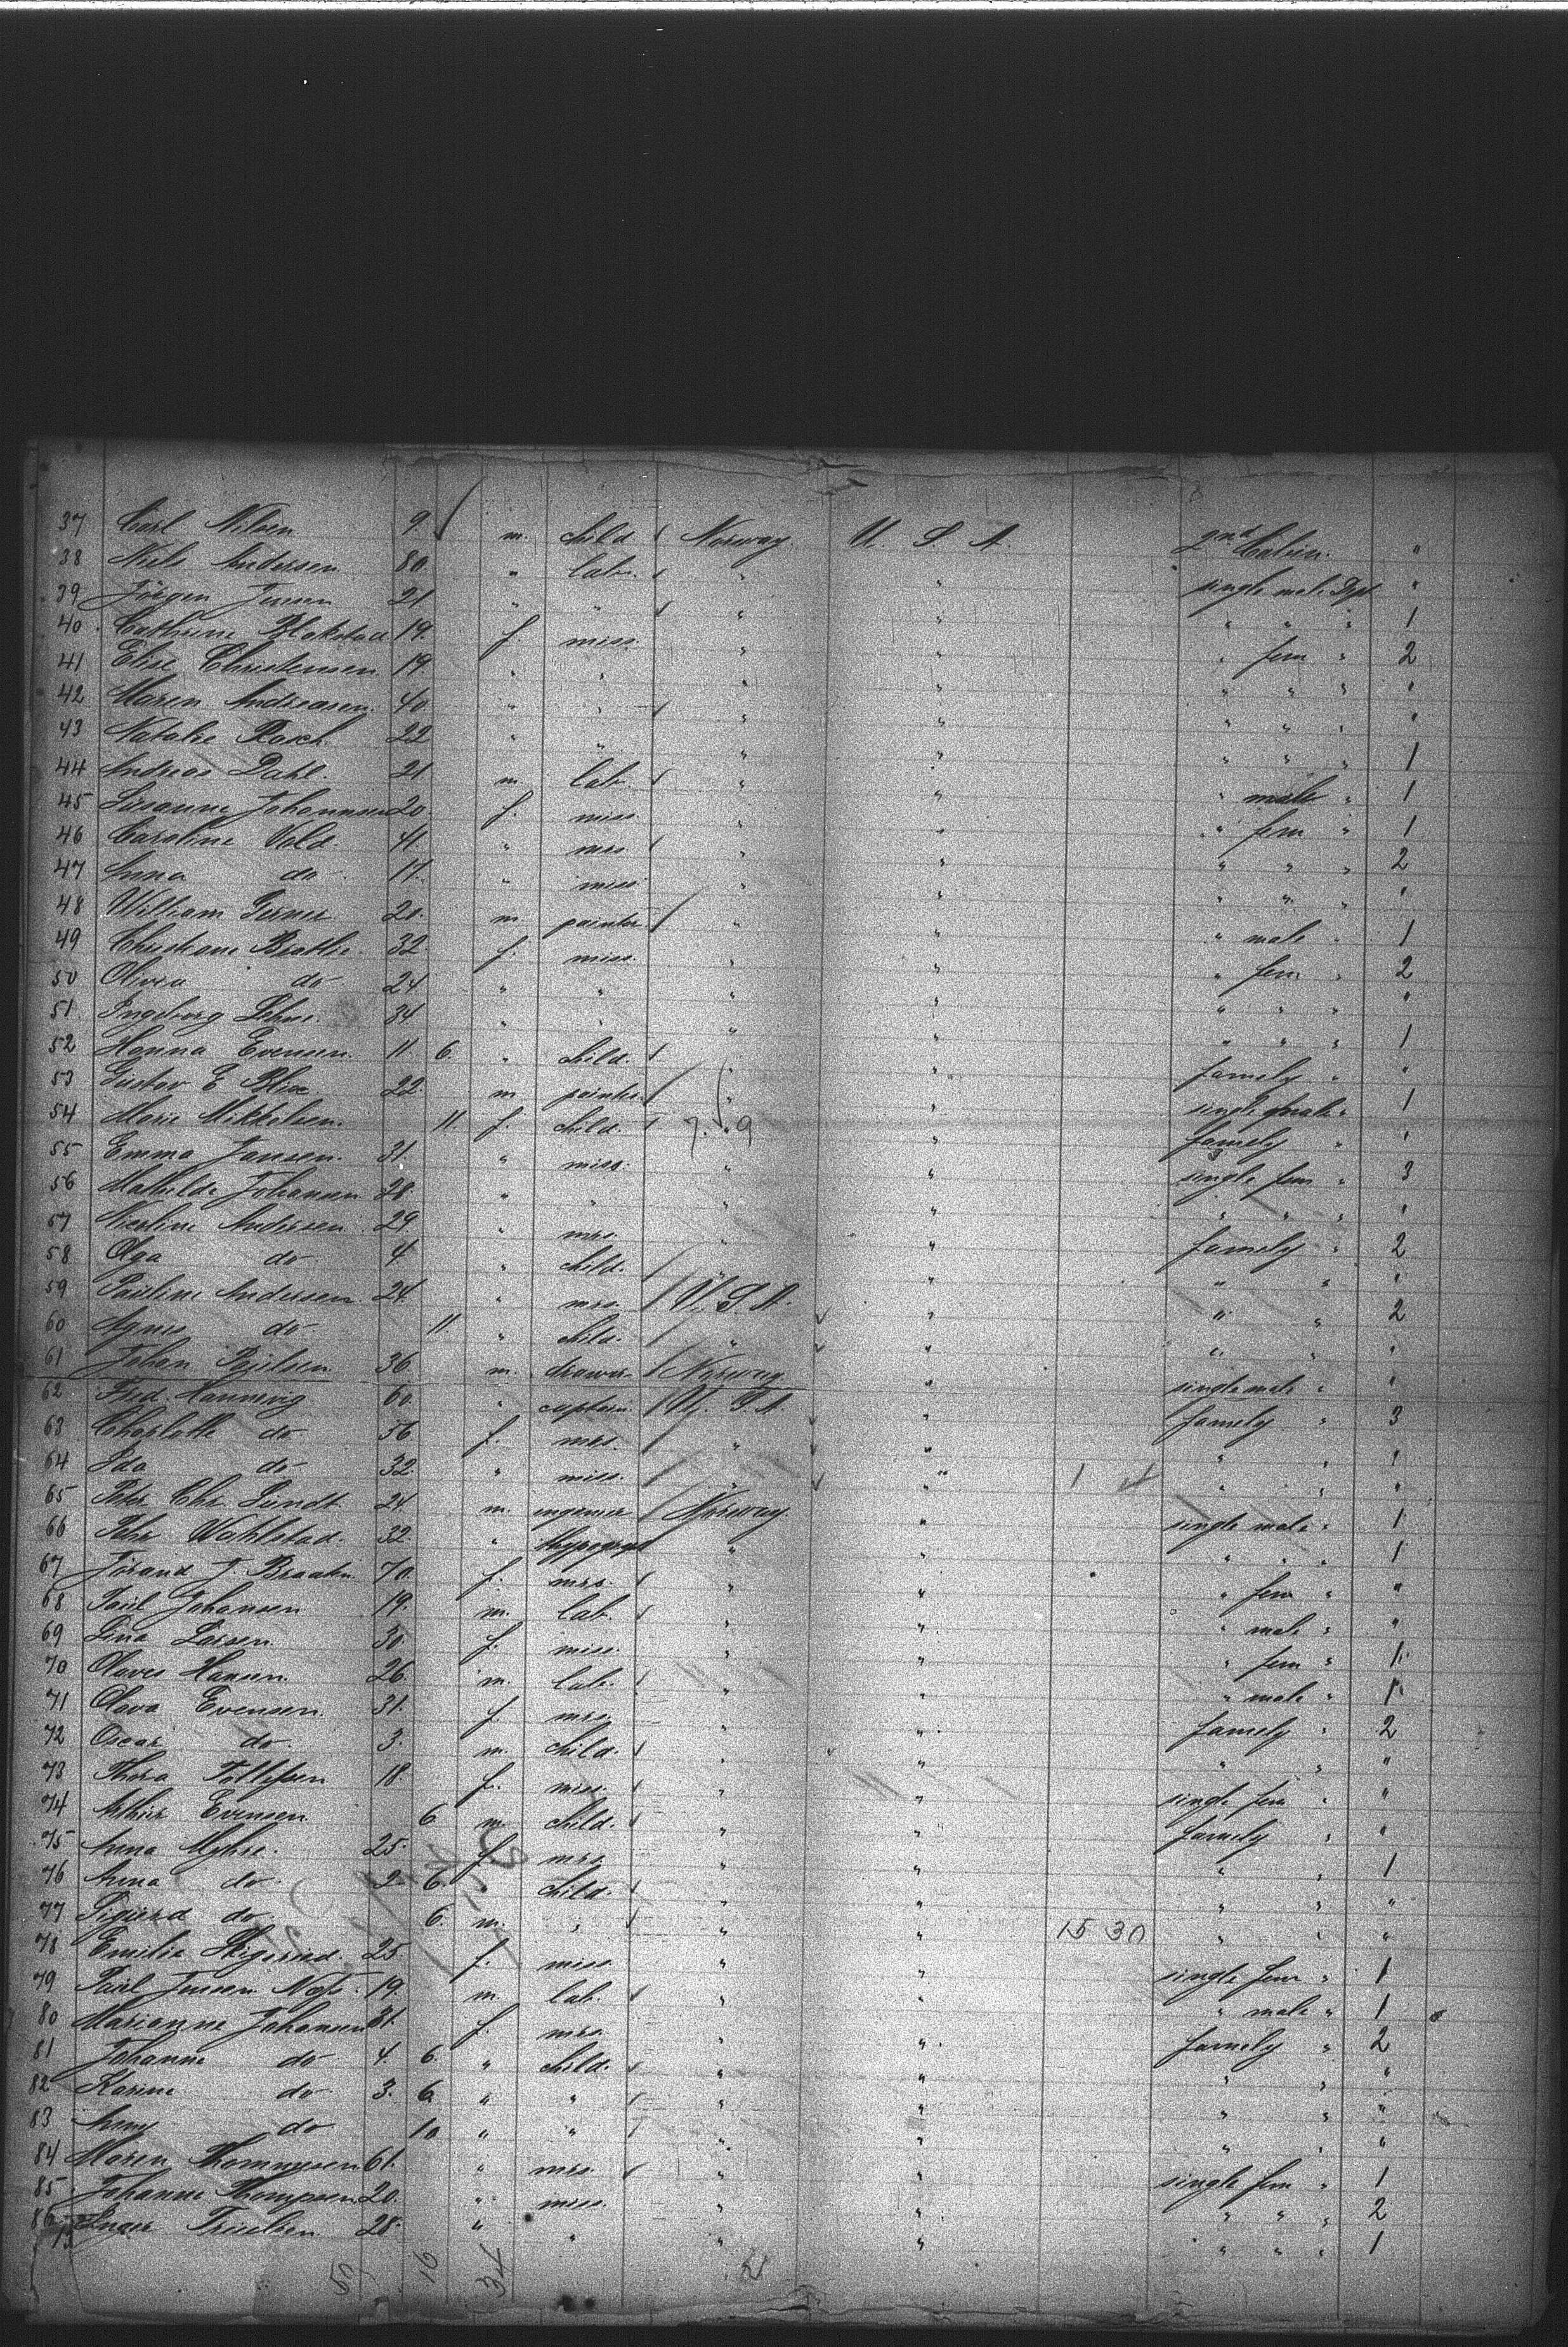 37 Carl Nilsen 9. m. child Norway. U. S. A. 2nd Cabin. "
38 Niels Andersen 80. " lab. " " single male Dpt "
39 Jörgen Jensen 21 " " " " " " " 1
40 Cathrine Blakstad 19. f. miss. " " " fem " 2
41 Elise Christensen 19. " " " " " " " "
42 Maren Andreasen 40 " " " " " " " "
43 Natalie Rasch 22 " " " " " " " 1
44 Andreas Dahl. 21 m lab. " " " male " 1
45 Susanne Johannesen 20. f. miss " " " fem " 1
46 Caroline Vold. 41. " mrs " " " " " 2
47 Anna do 17. " miss " " " " " "
48 William 20. m painter " " " male " 1
49 Christiane Brathe 32. f. miss. " " " fem " 2
50 Olivia do 24. " " " " " " " "
51. Ingeborg 34. " " " " " " " 1
52 Hanna Evensen. 11 6. " child. " " famely " "
53 Gustav E 22. m painter " " single male " 1
54 Marie Mikkelsen. 11. f. child. 7. 9 " famely " "
55 Emma Jansen. 31. " miss. " " single fem " 3
56 Mathilde Johansen 28. " " " " " " " "
57 Andersen 29 " mrs. " " famely " 2
58 Olga do 4. " child. " " " " "
59 Pauline Andersen. 24. " mrs. U. S. A. " " " 2
60 Agnes do 11. " child. " " " " "
61 Johan 36. m. Norway " single male " "
62 Fred. Hannevig 60. " captain U. S. A. " famely " 3
63 Charlotte do 56 f. mrs. " " " " "
64 Ida do 32. " miss. " " 1 " " "
65 Peter Chr. Lundt 24 m. Norway " single male " 1
66 Wahlstad. 32. " " " " " " 1
67 J. Braaten 70. f. mrs. " " " fem " "
68 Paul Johansen 19. m. lab. " " " male " "
69 Lina Larsen 30. f. miss. " " " fem " 1.
70 Olaves Hansen. 26. m. lab. " " " male " 1.
71 Olava Evensen. 31. f. mrs. " " famely " 2
72 Oscar do. 3. m. child. " " " " "
73 Thora Tollefsen 18. f. miss. " " single fem " "
74 Evensen 6. m. child. " " famely " "
75 Anna Myhre. 25. f. mrs. " " " " 1
76 Anna do 2 6. " child. " " " " "
77 Sigurd do. 6. m. " " " 15 30 " " "
78 Emilia 25 f. miss. " " single fem " 1
79 Paul Jensen 19. m. lab. " " " male " 1
80 Marianne Johansen 31. f. mrs. " " famely " 2
81 Johanne do 4. 6. " child. " " " " "
82 Karine do 3. 6. " " " " " " "
83 do 10 " " " " " " "
84 Maren Thommesen 61. " mrs. " " single fem " 1
85. Johanne Thompson 20. " miss. " " " " " 2
86 Inger 28. " " " " " " " 1
50 16 34